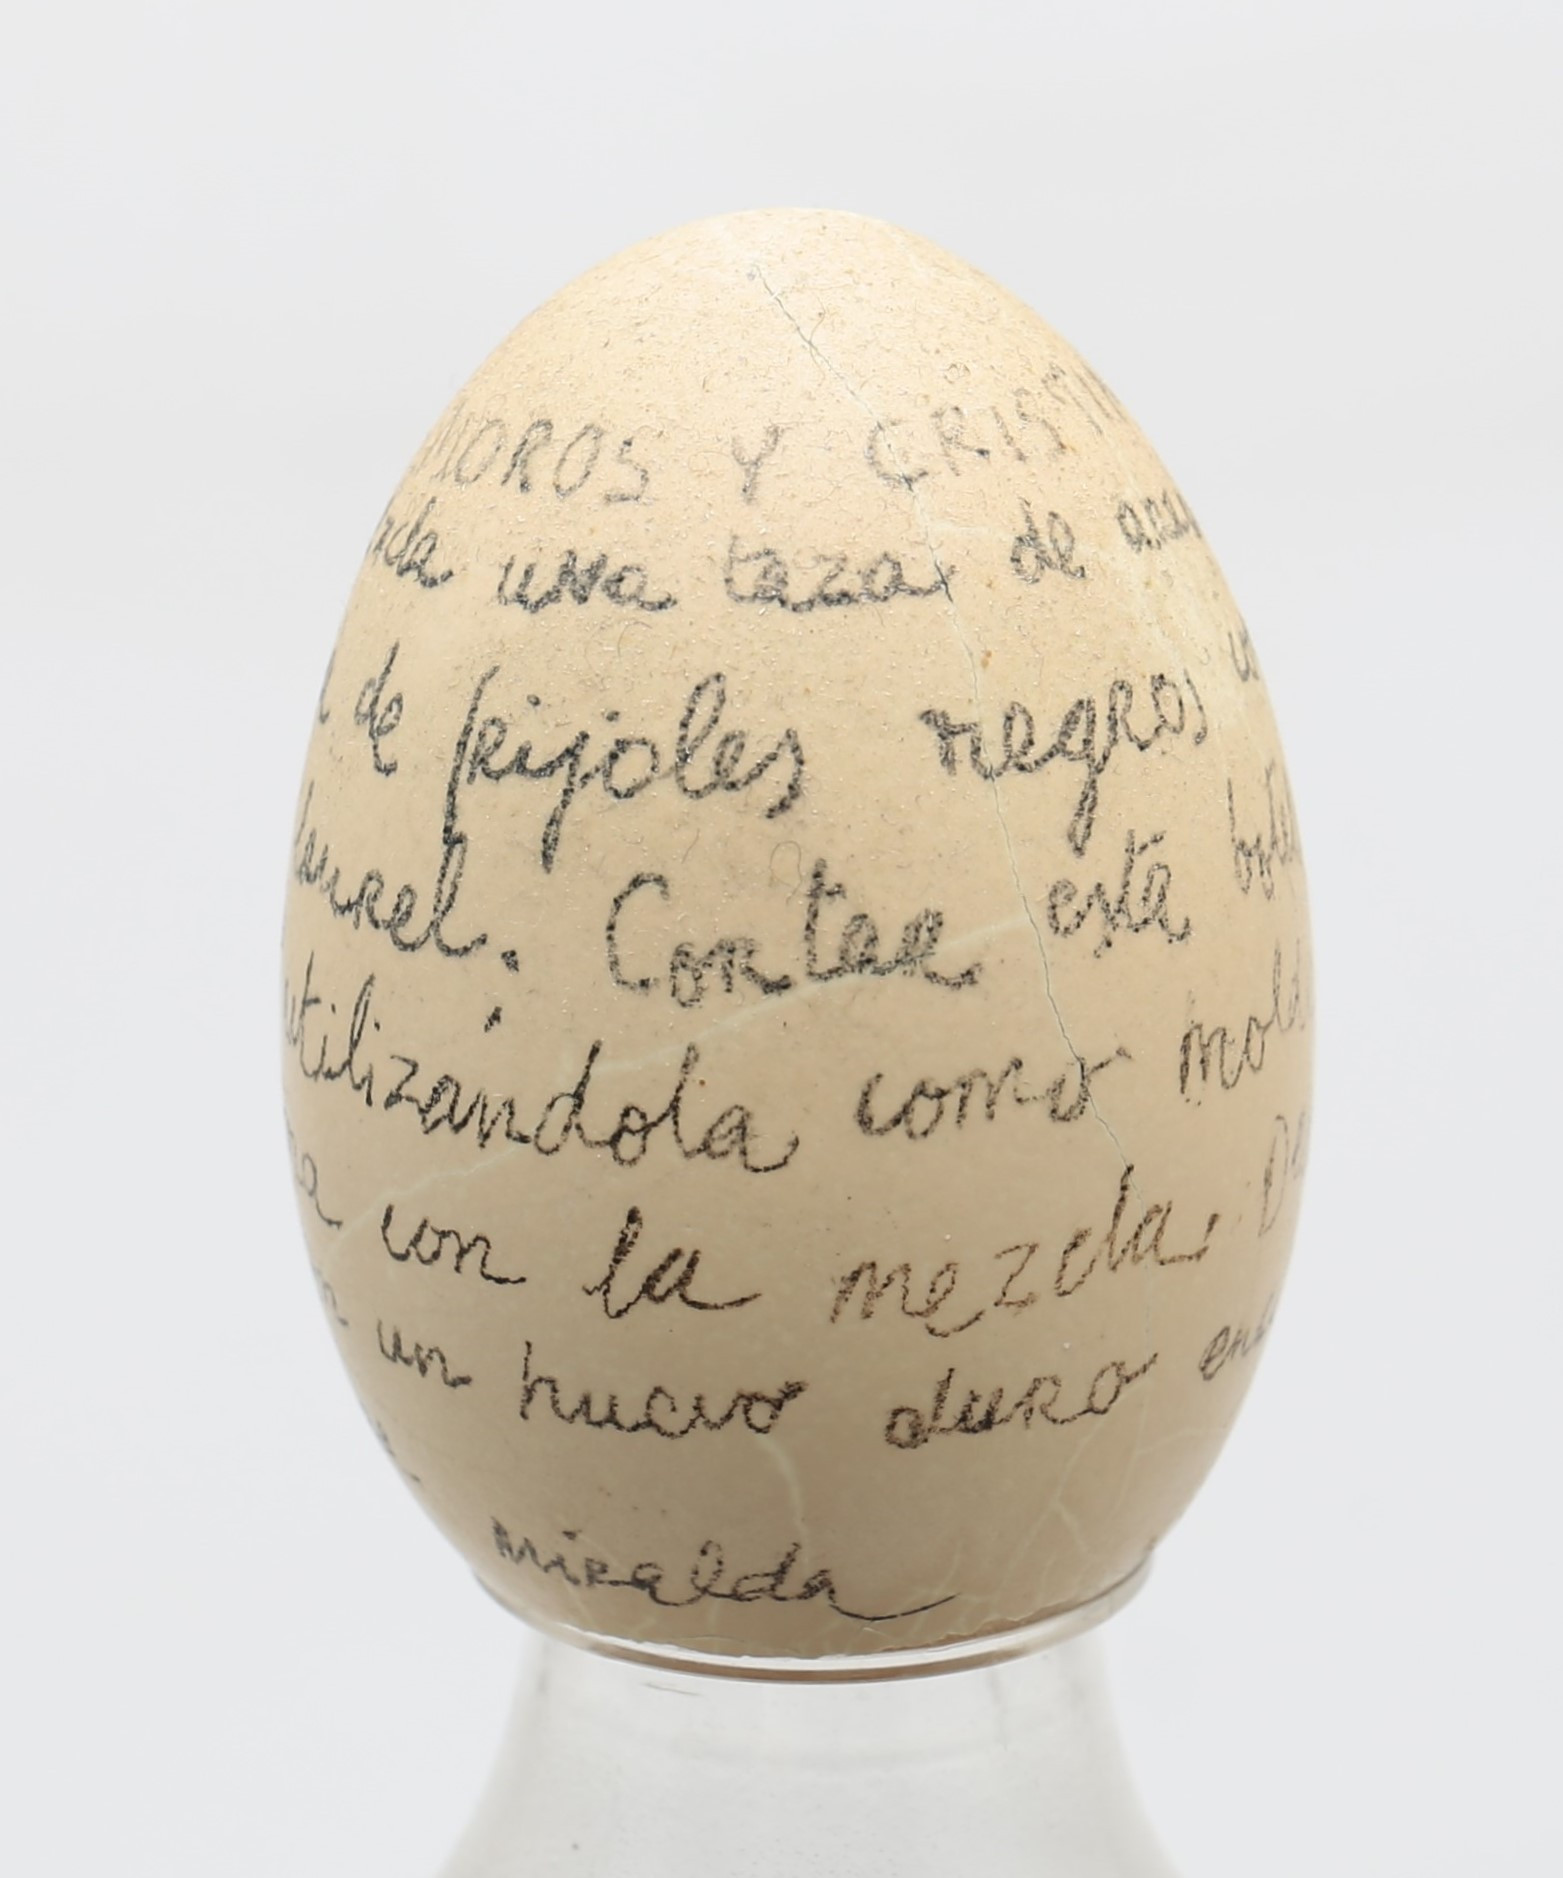 MOROS Y CRISTI
una taza de
de frijoles negros
laurel. Cortar esta
utilizándola como mold
con la mezcla.
un huevo duro
miralda